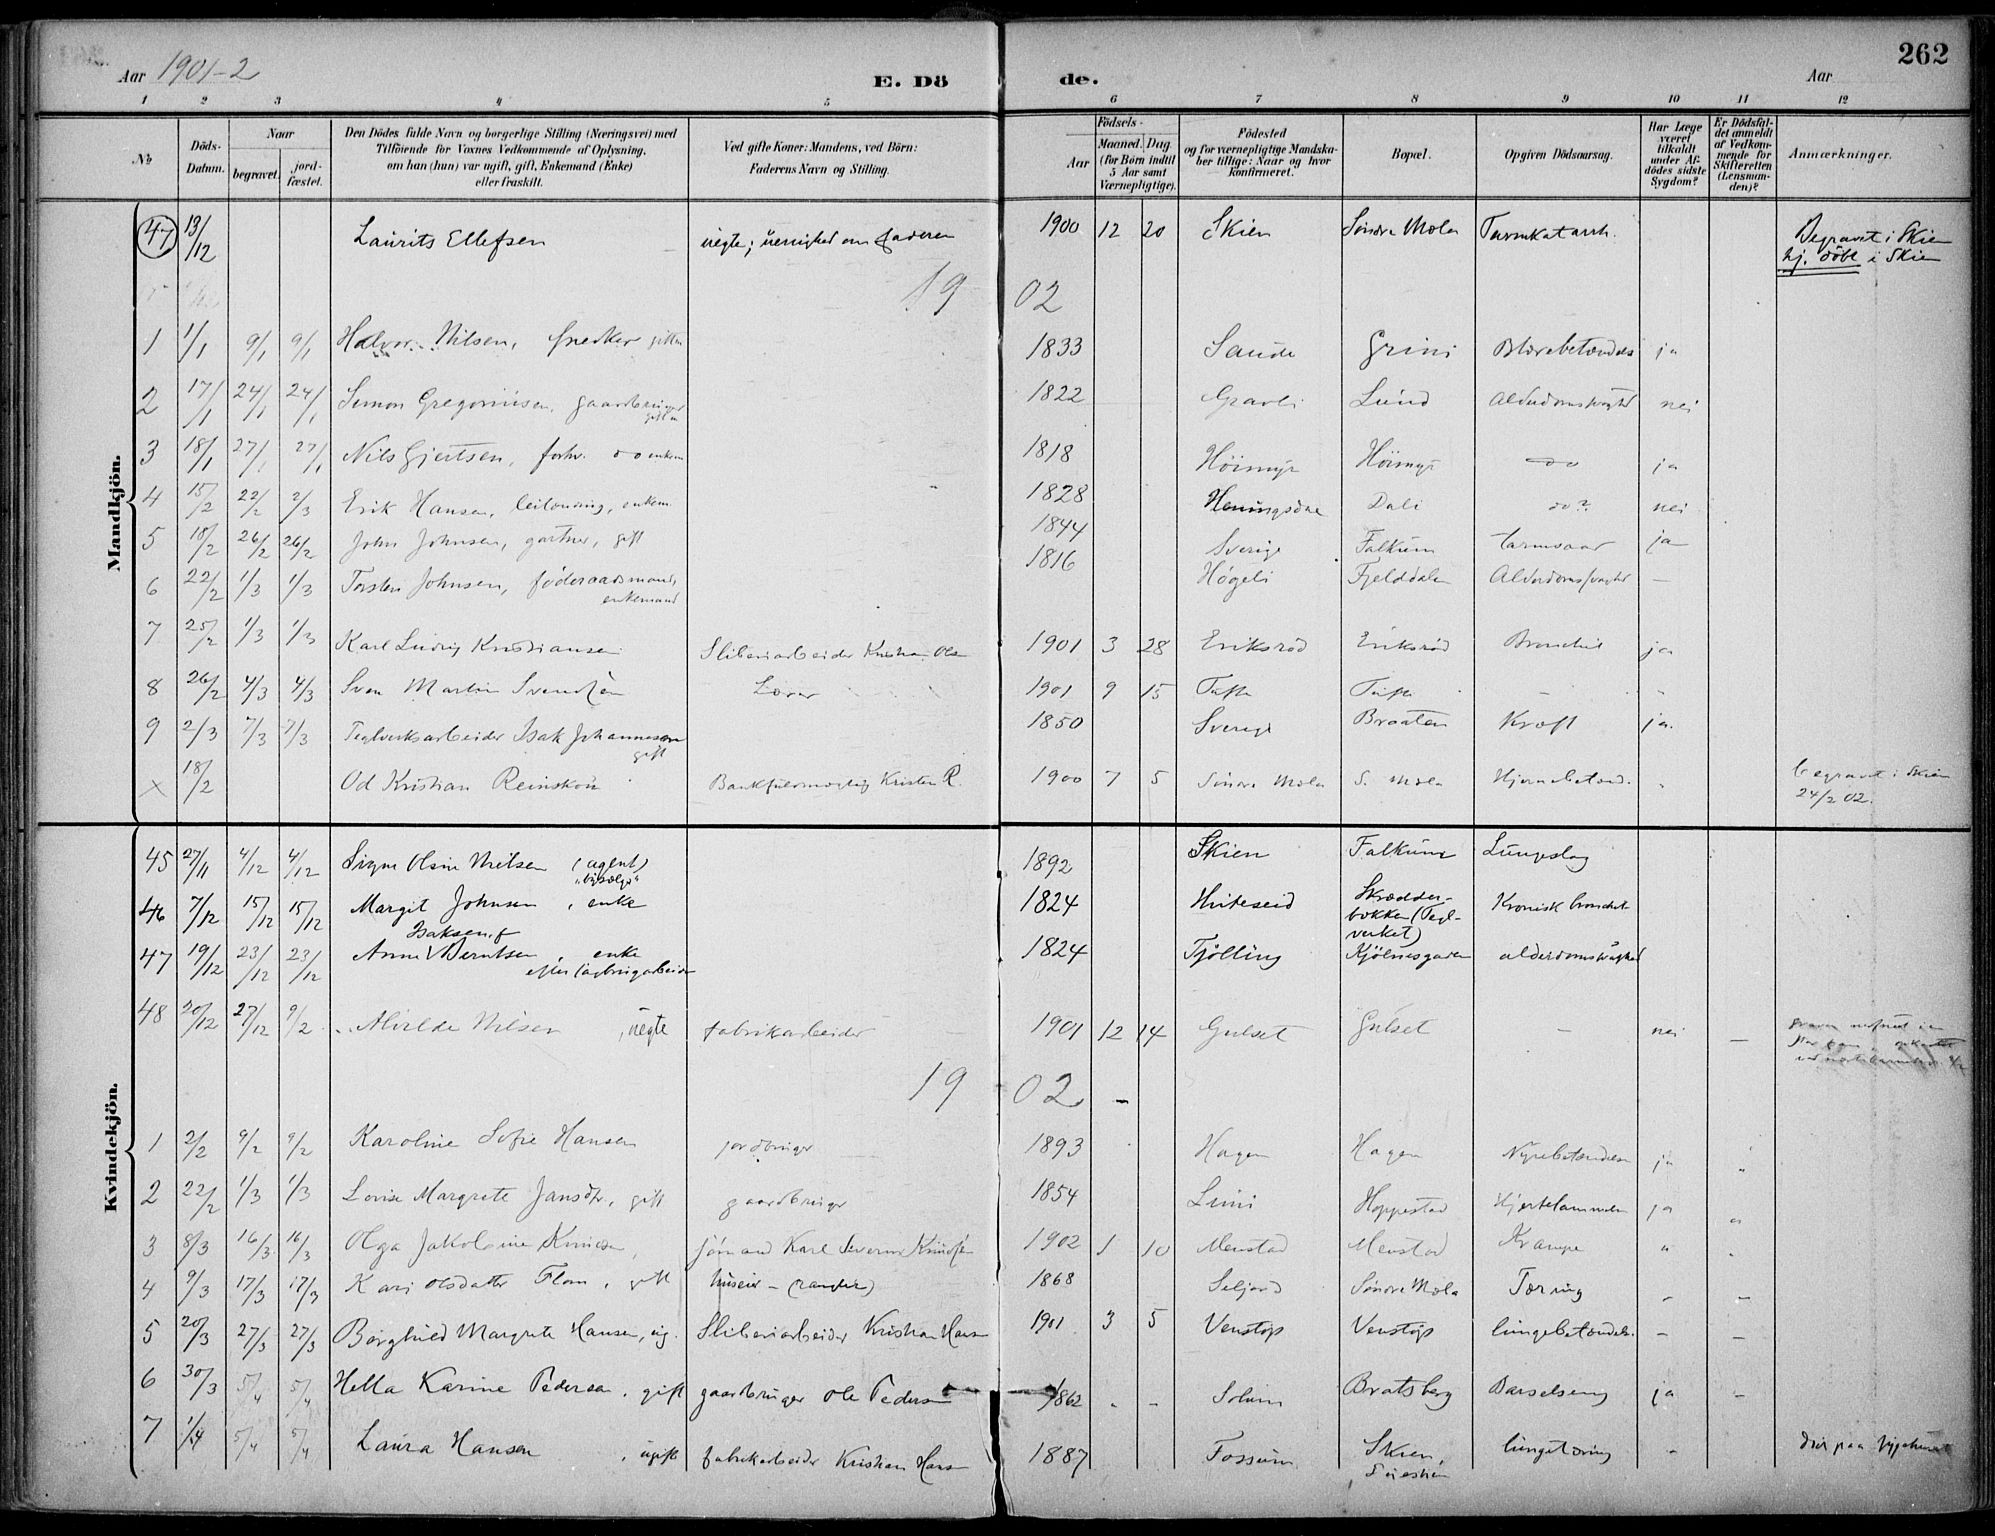 Aar 1901-2 E. Dö de. Aar 262
1 2 3 4 5 6 7 8 9 10 11 12
No
Döds-Datum.
Naar
begravet.
jord-fæstet.
Den Dödes fulde Navn og borgerlige Stilling (Næringsvei) med
Tilföiende for Voxnes Vedkommende af Oplysning,
om han (hun) var ugift, gift, Enkemand (Enke)
eller fraskilt.
Ved gifte Koner: Mandens, ved Börn:
Faderens Navn og Stilling.
Aar
Födsels-
Maaned. Dag.
(for Börn indtil
5 Aar samt
Værnepligtige).
Födested
og for værnepligtige Mandska-
ber tillige: Naar og hvor
konfirmeret.
Bopæl.
Opgiven Dödsaarsag.
Har Læge
været
tilkaldt
under Af-
dödes sidste
Sygdom?
Er Dödsfal-
det anmeldt
af Vedkom-
mende for
Skifteretten
(Lensman-
den)?
Anmærkninger.
Mandkjön.
47 13/12 Laurits Ellefsen uegte; uenighed om faderen 1900 12 20 Skien Söndre Mæla Tarmkatarrh. Begravet i Skien
hj. döbt i Skien
19 02
1 1/1 9/1 9/1 Halvor Nilsen, snedker 1833 Saude Grini Blærebetændels ja
2 17/1 24/1 24/1 Simon Gregoriusen, gaardbruger 1822 Gravli Lund Alderdomssvaghed nei
3 18/1 27/1 27/1 Nils Gjertsen, forhv. do enkem 1818 Höimyr Höimyr do ja
4 15/2 22/2 2/3 Erik Hansen, leilænding, enkem. 1828 Dali do? nei
5 18/2 26/2 26/2 John Johnsen, gartner, gift 1844 Sverige Falkum tarmsaar ja
6 22/2 1/3 1/3 Torsten Johnsen, föderaadsmand, 1816 Högeli Fjelddalen Alderdomssvaghed –
enkemand
7 25/2 1/3 1/3 Karl Ludvig Kristiansen Sliberiarbeider Kristian Olsen 1901 3 28 Eriksröd Eriksröd Bronchit ja
8 26/2 4/3 4/3 Sven Martin Svendsen Lærer 1901 9 15 Tufte Tufte –
9 2/3 7/3 7/3 Teglverksarbeider Isak Johannessen 1850 Sverige Braaten Kræft ja.
gift
x 18/2 Od Kristian Reinskou Bankfuldmægtig Kristen R. 1900 7 5 Söndre Mæla S. Mæla Hjernebetænd. begravet i Skien
24/2 02.
Kvindekjön.
45 27/11 4/12 4/12 Signe Olsin Nielsen (agent) 1892 Skien Falkum Lungeslag
46 7/12 15/12 15/12 Margit Johnsen, enke 1824 Hviteseid Skrædder-
bakken (Tegl-
verket) Kronisk bronchit
47 19/12 23/12 23/12 Anne Berntsen, enke 1824 Tjölling Kjölnesgaren alderdomssvaghed
Isaksen, f
48 20/12 27/12 9/2 Alvilde Nilsen, uegte fabrikarbeider 1901 12 14 Gulset Gulset – nei –
19 02
1 2/2 9/2 9/2 Karoline Sofie Hansen jordbruger 1893 Hagen Hagen Nyrebetændelse ja
2 22/2 1/3 1/3 Lovise Margrete Jansdtr, gift gaardbruger 1854 Limi Hoppestad Hjertelammelse ja
3 8/3 16/3 16/3 Olga Jakobine Knudsen, sömand Karl Severin Knudsen 1902 1 10 Menstad Menstad Krampe
4 9/3 17/3 17/3 Kari Olsdatter Flom, gift 1868 Seljord Söndre Mæla Tæring – –
5 20/3 27/3 27/3 Borghild Margrete Hansen, ug. Sliberiarbeider Kristian Hansen 1901 3 5 Venstöp Venstöp lungebetændels. – –
6 30/3 5/4 5/4 Hella Karine Pedersen, gift gaardbruger Ole Pedersen 1862 - - Solum Bratsberg Barselseng ja –
7 1/4 5/4 5/4 Laura Hansen, ugift fabrikarbeider Kristian Hansen 1887 Fossum Skien, lungetæring - död paa sygehuset